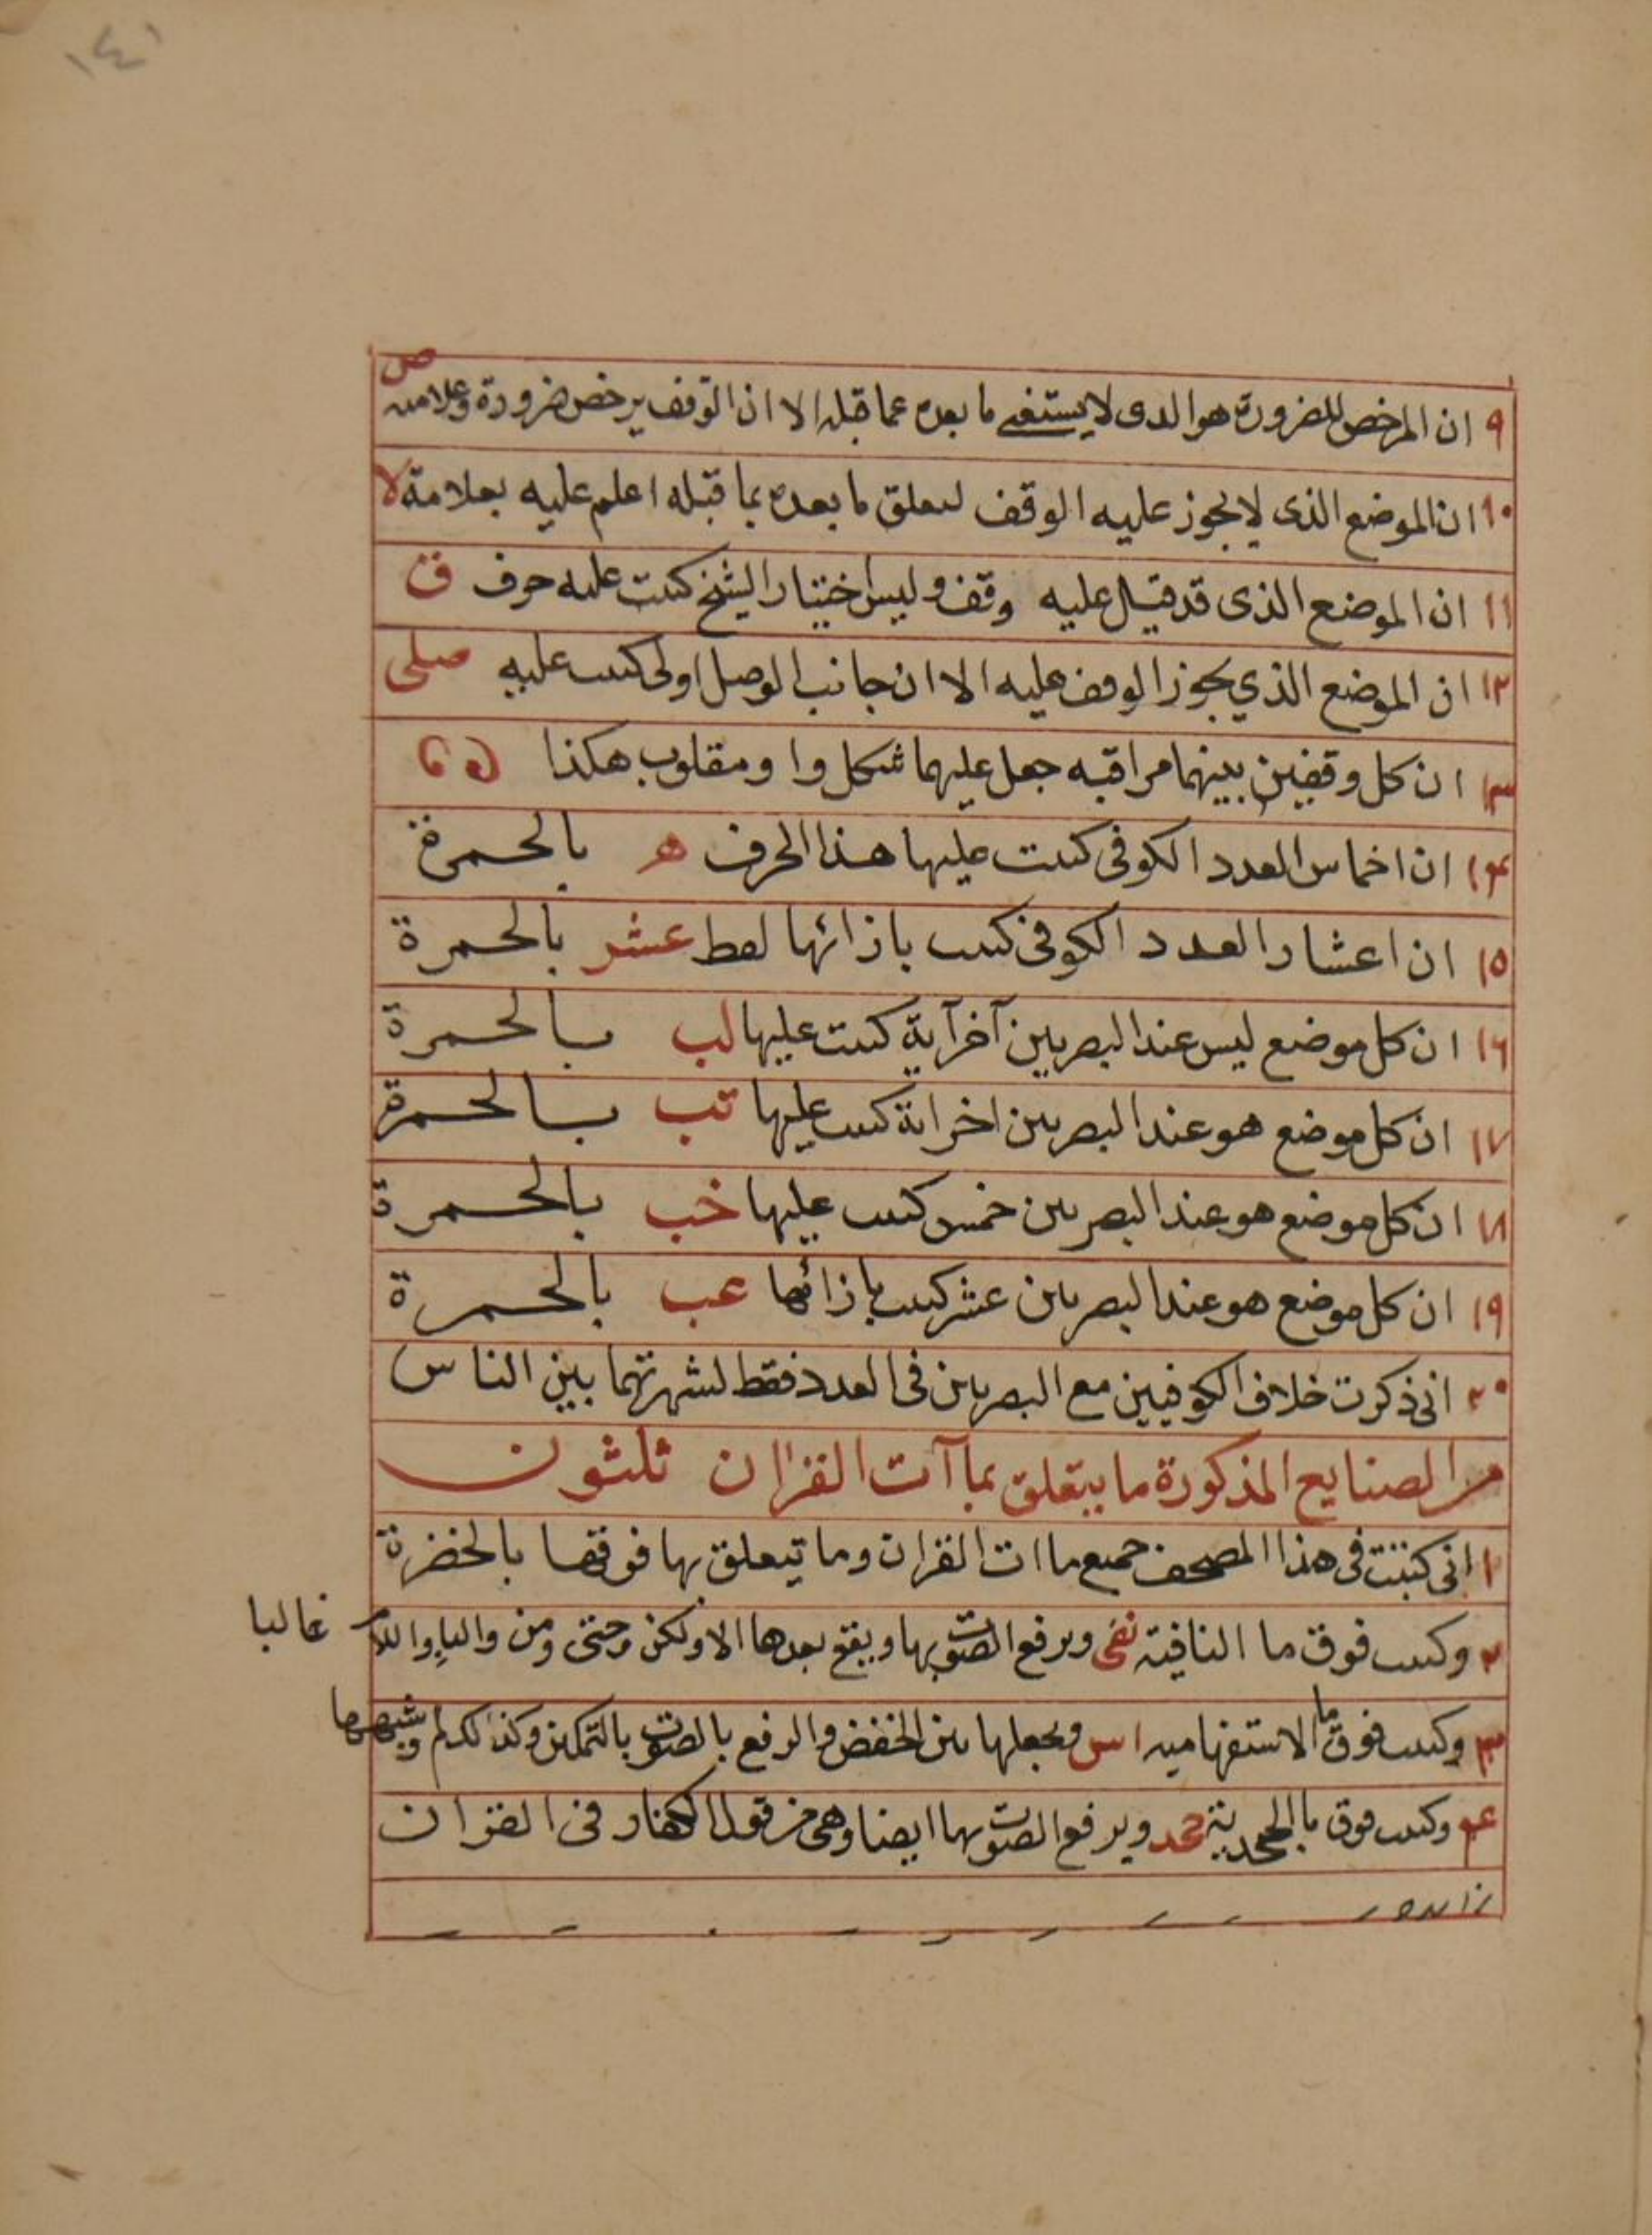 ١٤١
٩ ان المرخص للضرورة هو الدى لا يستغنى ما بعده عما قبله الا ان الوقف يرخص ضرورة وعلامته ص
١٠ ان الموضع الذى لا يجوز عليه الوقف لتعلق ما بعده بما قبله اعلم عليه بعلامة لا
١١ ان الموضع الذى قد قيل عليه وقف وليس اختيار الشيخ كتبت عليه حرف ق
١٢ ان الموضع الذي يجوز الوقف عليه الا ان جانب الوصل اولى كتبت عليه صلى
١٣ ان كل وقفين بينهما مراقبه جعل عليهما شكل واو مقلوب هكذا
١٤ ان اخماس العدد الكوفى كتبت عليها هذا الحرف ھ بالحمرة
١٥ ان اعشار العدد الكوفى كتبت بازائها لفظ عشر بالحمرة
١٦ ان كل موضع ليس عند البصريين آخر آية كتبت عليها لب بالحمرة
١٧ ان كل موضع هو عند البصريين اخر اية كتبت عليها تب بالحمرة
١٨ ان كل موضع هو عند البصريين خمس كتبت عليها خب بالحمرة
١٩ ان كل موضع هو عند البصريين عشر كتبت بازائها عب بالحمرة
٢٠ انى ذكرت خلاف الكوفيين مع البصريين فى العدد فقط لشهرتهما بين الناس
من الصنايع المذكورة ما يتعلق بماآت القران ثلثون
١ انى كتبت فى هذا المصحف جميع ماات القران وما يتعلق بها فوقها بالخضرة
٢ وكتبت فوق ما النافية نفى ويرفع الصوت بها ويقع بعدها الا ولكن وحتى ومن والباء واللام غالبا
٣ وكتبت فوق ما الاستفهاميه اس ويجعلها بين الخفض والرفع بالصوت بالتمكين وكذلك لم وشبهها
٤ وكتبت فوق ما الجحدية جحد ويرفع الصوت بها ايضا وهى من قول الكفار فى القران